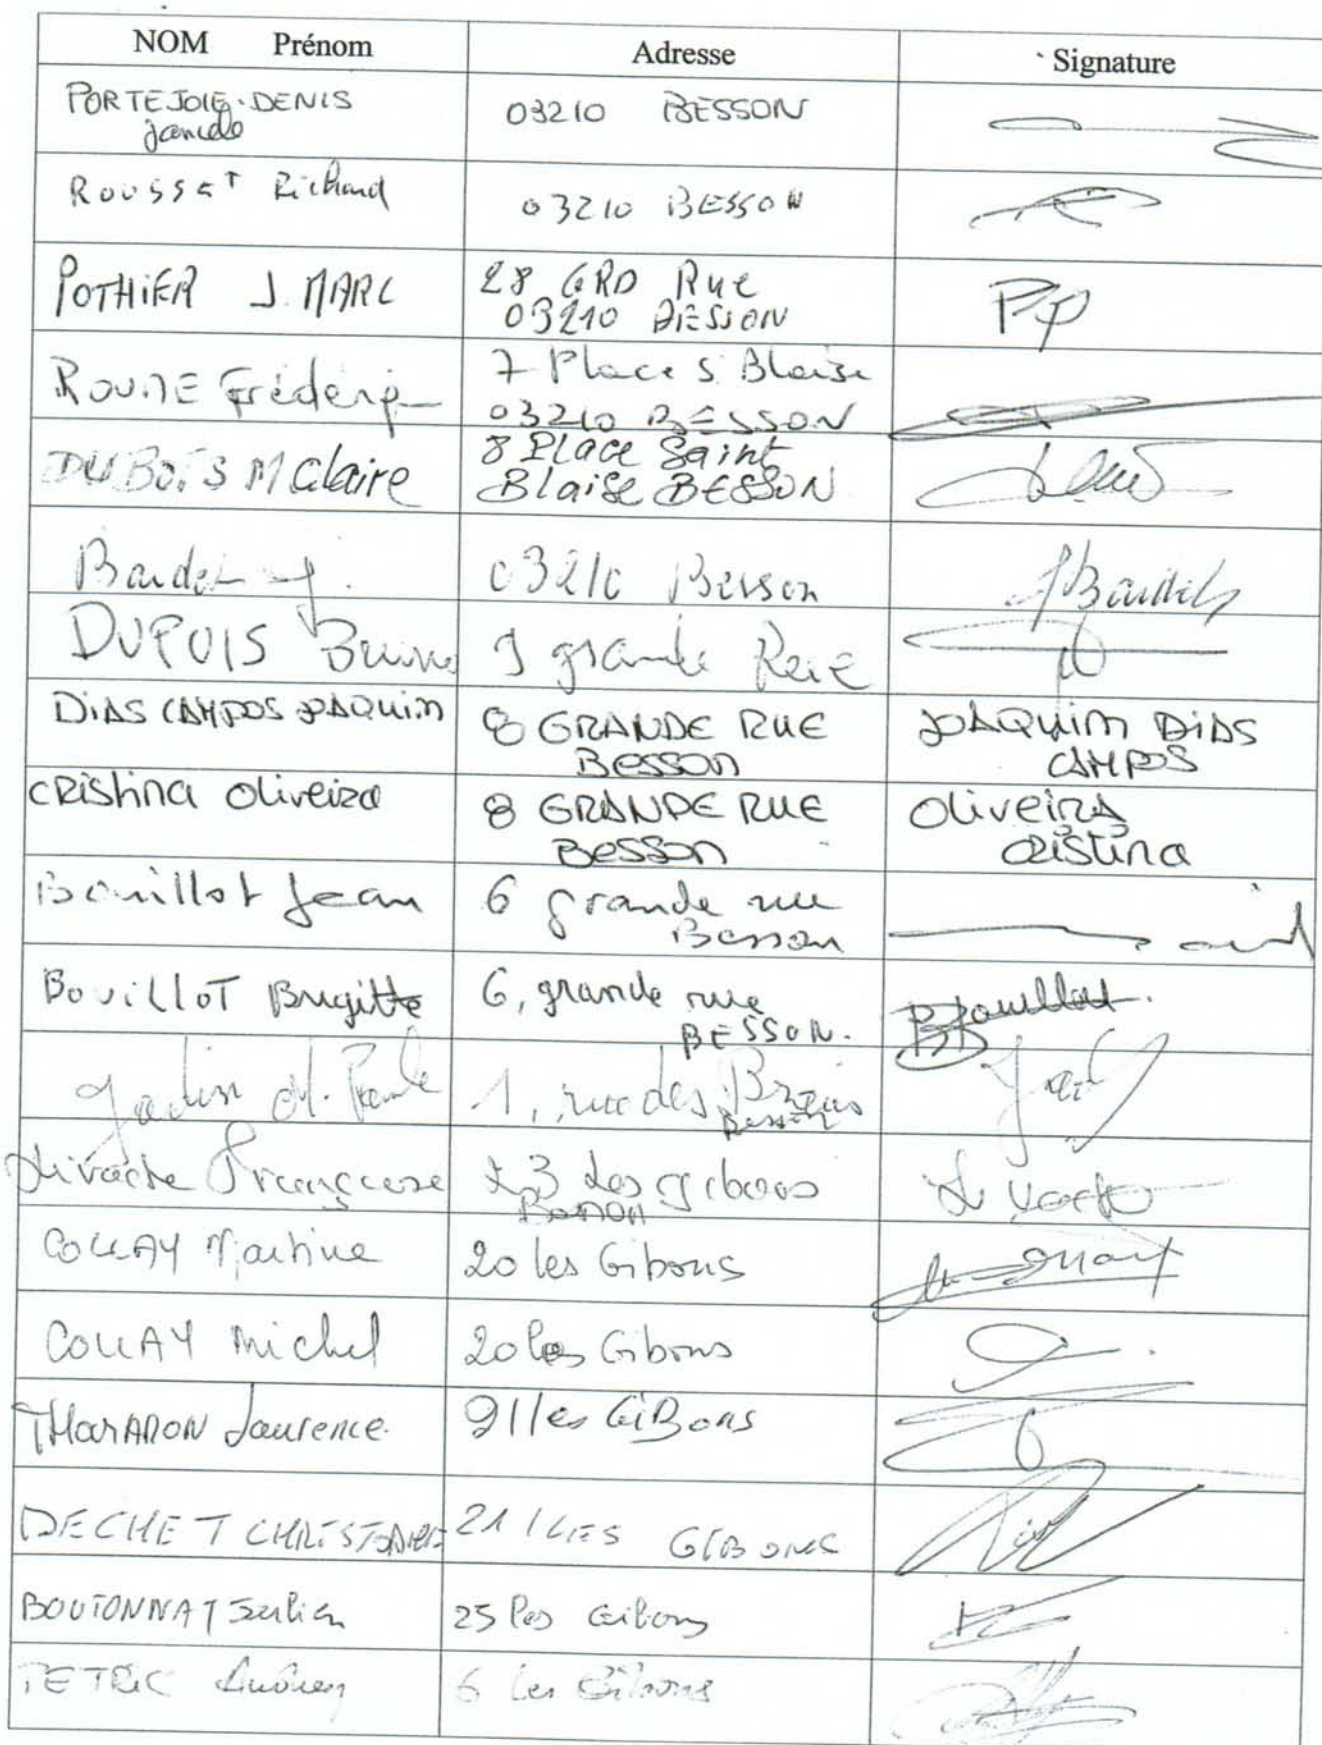 NOM Prénom Adresse Signature
PORTEJOIE-DENIS 03210 BESSON
ROUSSET Richard 03210 BESSON
POTHIER J. MARC 28 GRD Rue PP
03210 BESSON
Frédérique 7 Place S Blaise
03210 BESSON
DUBOIS M Claire 8 Place Saint
Blaise BESSON
Bardet J. 03210 Besson Bardet
DUPUIS Bruno 9 grande Rue
DiAS CAMPOS JOAQUim 8 GRANDE RUE JOAQUim DiAS
Besson CAMPOS
CRistina Oliveira 8 GRANDE RUE Oliveira
Besson CRistina
Bouillot Jean 6 grande rue
Besson
BOUILLOT Brigitte 6, grande rue BBouillot.
BESSON.
Jadin M. Paule 1, rue des
Besson
Livache Françoise 23 Les gibons Livache
Besson
COLLAY Martine 20 les Gibons
COLLAY Michel 20 les Gibons
Laurence 21 les GiBons
DECHET CHRISTOPHE 21 LES GIBONS
BOUTONNAT Julien 25 les Gibons
PETRIC 6 Les Gibons